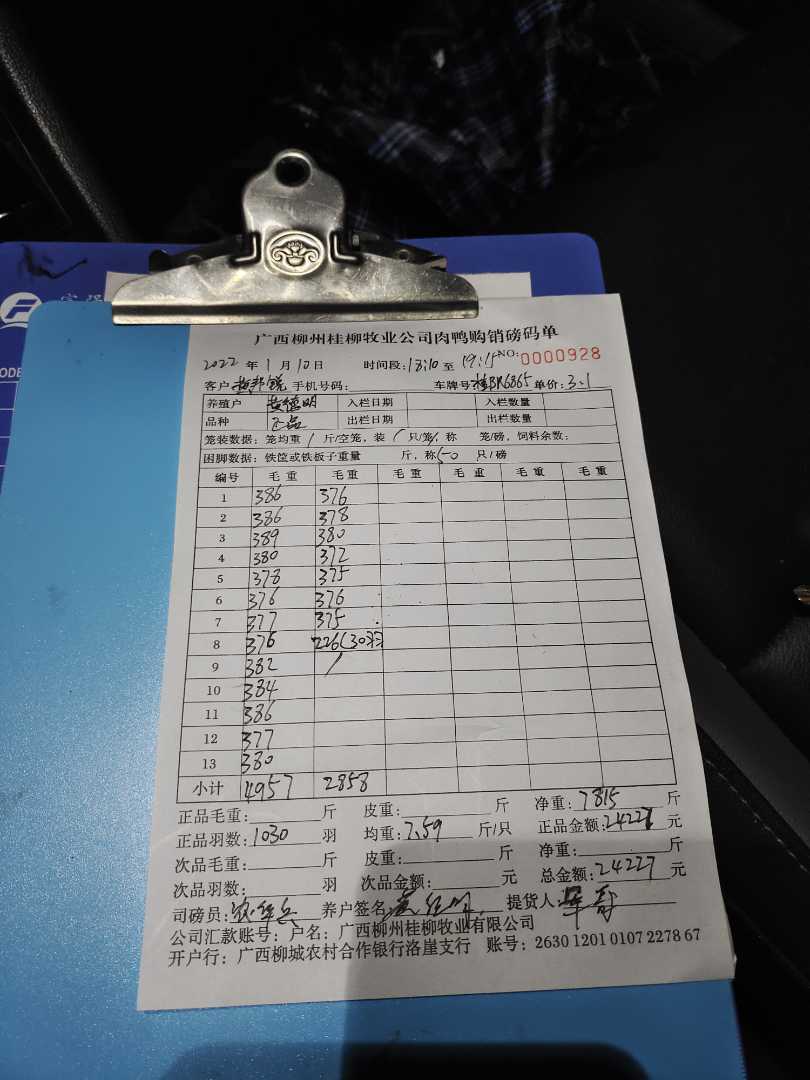 广西柳州桂柳牧业公司肉鸭购销磅码单
2022年1月10日 时间段:18:10至19:15 NO:0000928
客户 手机号码: 车牌号:桂BR6865 单价:3.1
养殖户 黄德明 入栏日期 入栏数量
品种 正品 出栏日期 出栏数量
笼装数据:笼均重/斤/空笼,装/只/笼,称 笼/磅,饲料余数:
困脚数据:铁筐或铁板子重量 斤,称50只/磅
编号 毛重 毛重 毛重 毛重 毛重 毛重
1 386 376
2 386 378
3 389 380
4 380 372
5 378 375
6 376 376
7 377 375
8 376 226(30羽
9 382 /
10 384
11 386
12 377
13 380
小计 4957 2858
正品毛重:斤 皮重:斤 净重:7815斤
正品羽数:1030羽 均重:7.59斤/只 正品金额:24227元
次品毛重:斤 皮重:斤 净重:斤
次品羽数:羽 次品金额:元 总金额:24227元
司磅员: 养户签名 提货人:
公司汇款账号:户名:广西柳州桂柳牧业有限公司
开户行:广西柳城农村合作银行洛崖支行 账号:2630 1201 0107 2278 67